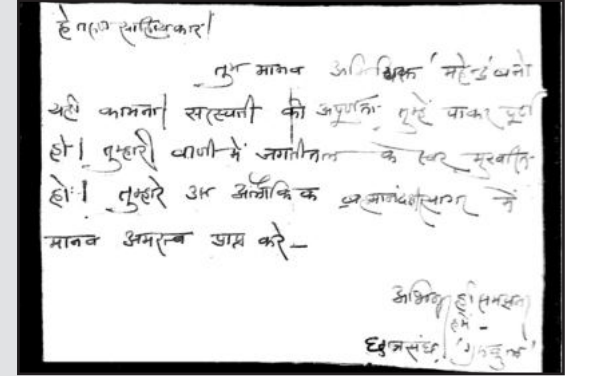 हे तरुण साहित्यकार!
तुम मानव अभिषिक्त 'महेन्द्र' बनो
यही कामना। सरस्वती की अपूर्णता तुम्हें पाकर पूर्ण
हो। तुम्हारी वाणी में जगतीतल के स्वर मुखरित
हों। तुम्हारे उस अलौकिक ब्रह्मानंद सागर में
मानव अमरत्व प्राप्त करे –
अभिन्न ही समझना
हमें –
छात्रसंघ, 'गुरुकुल'